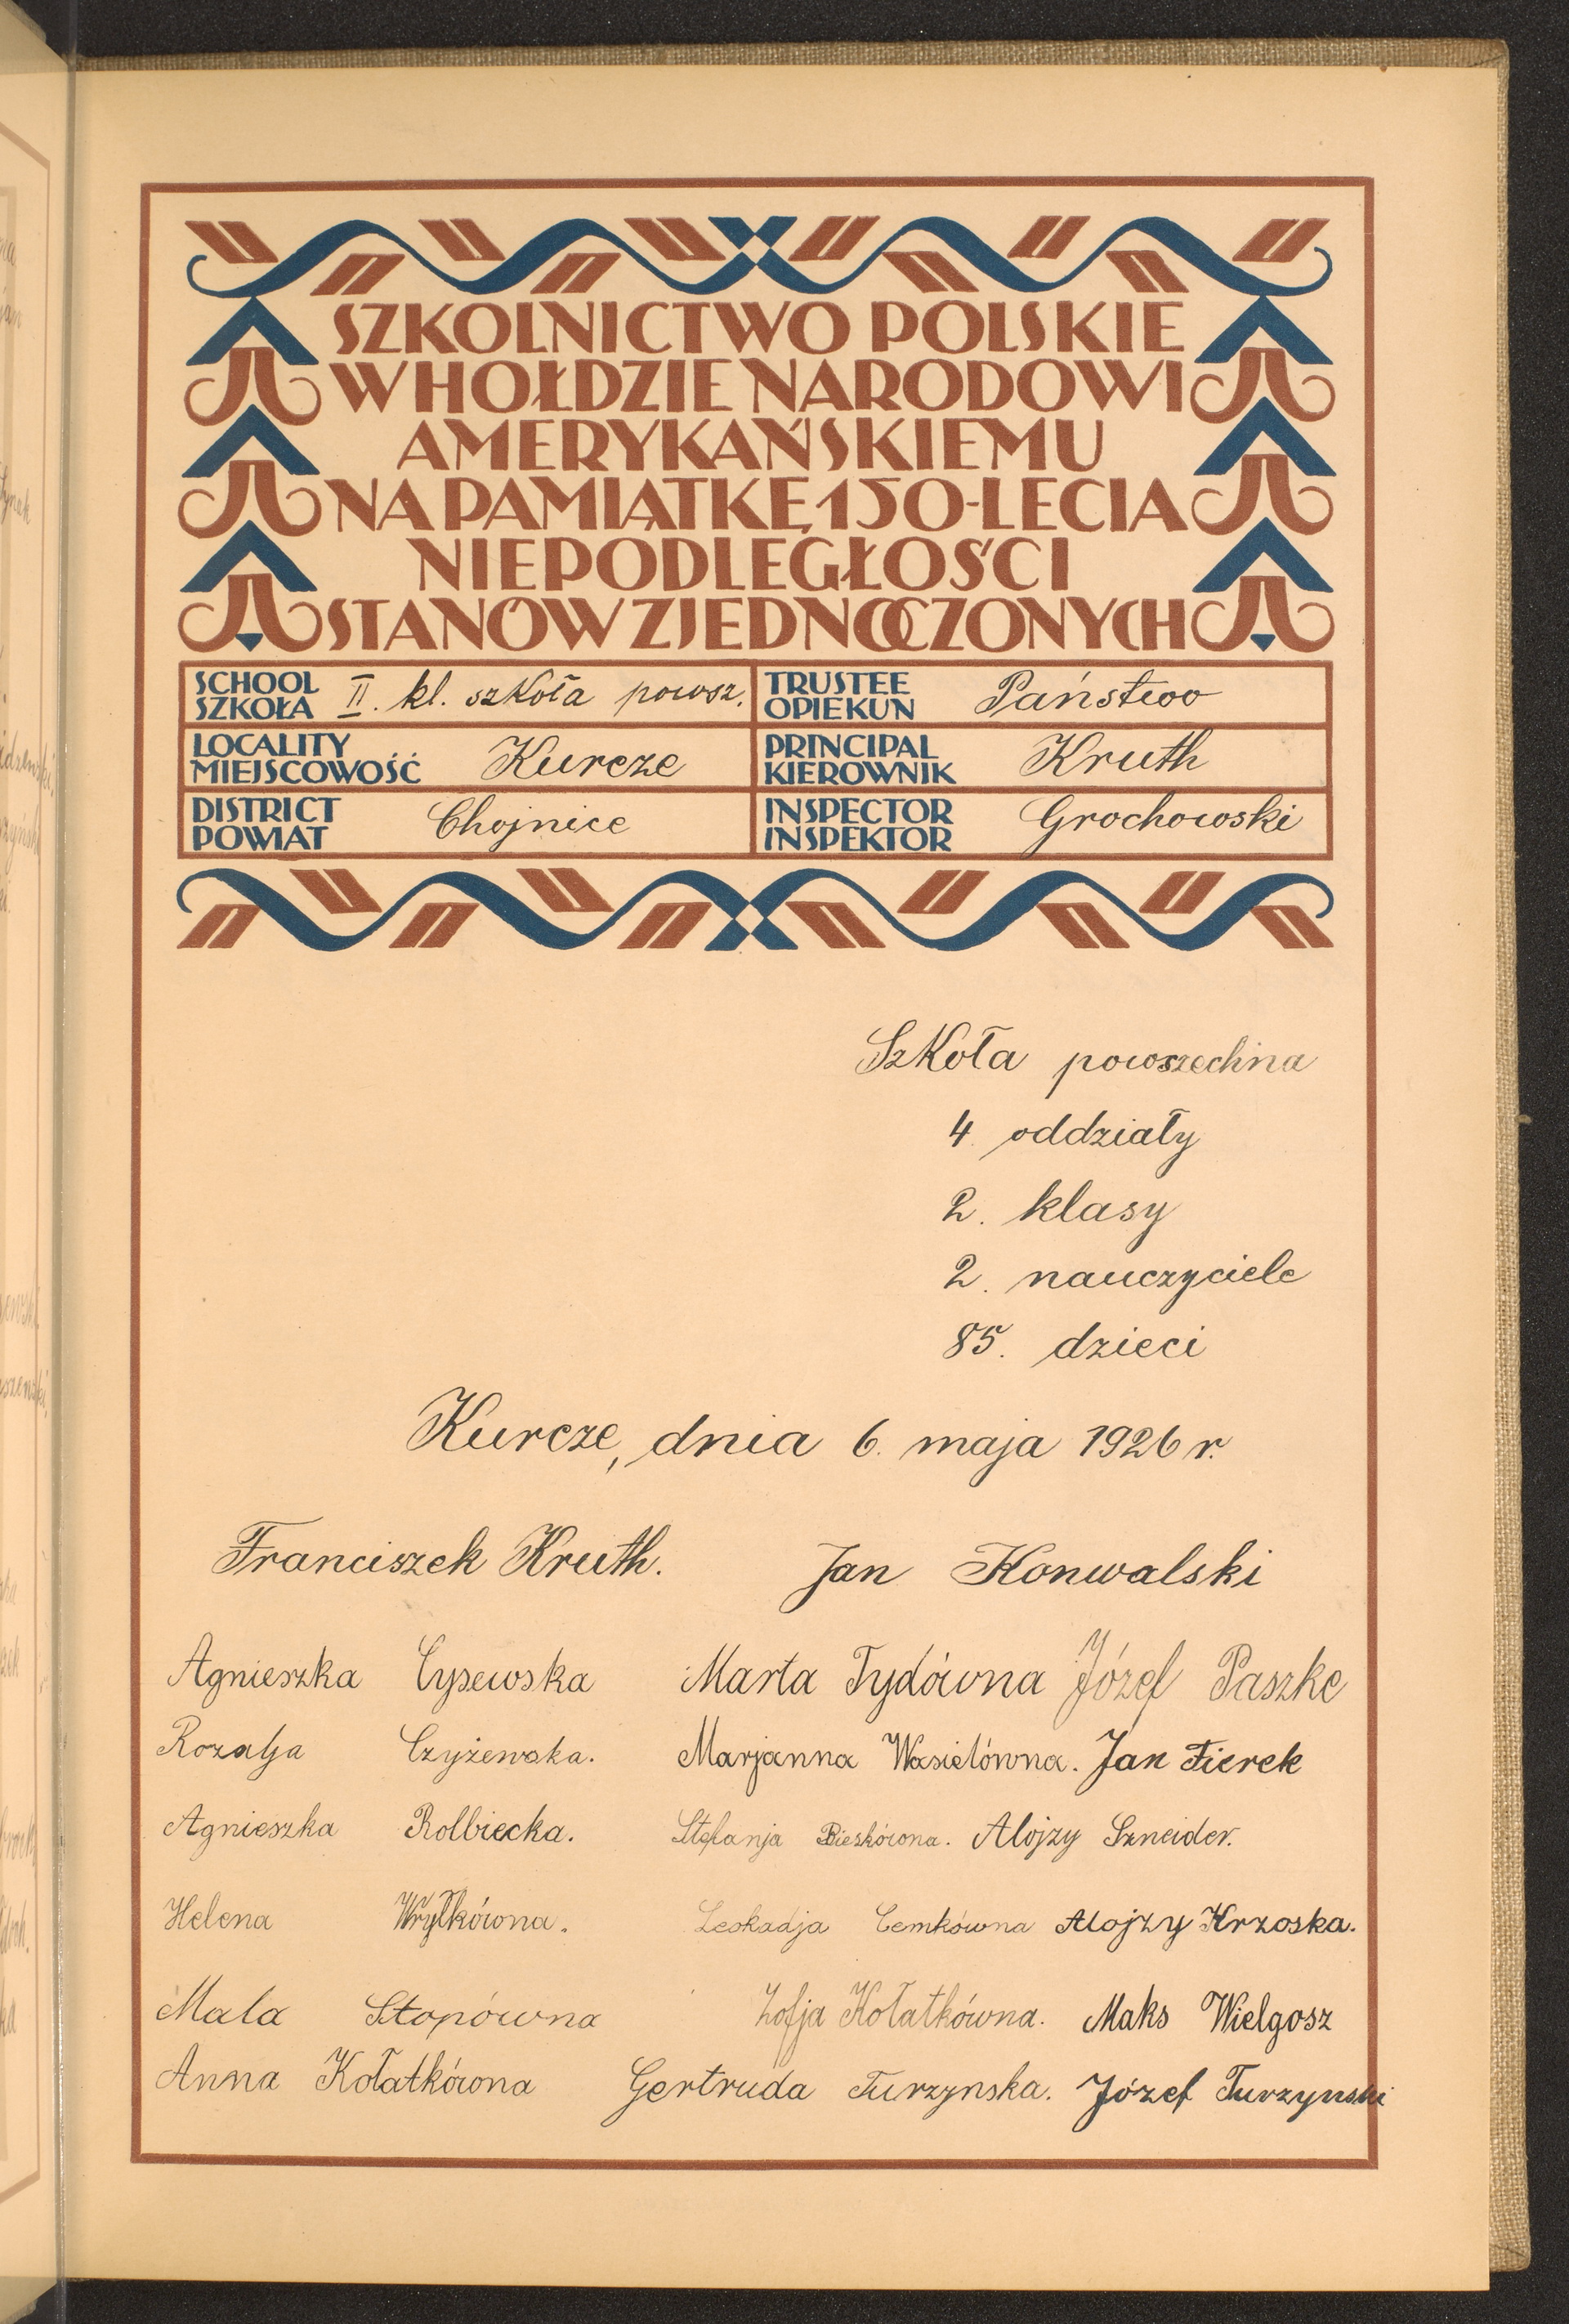 SZKOLNICTWO POLSKIE
W HOŁDZIE NARODOWI
AMERYKAŃSKIEMU
NA PAMIĄTKĘ 150-LECIA
NIEPODLEGŁOŚCI
STANÓW ZJEDNOCZONYCH
SCHOOL
SZKOŁA II. kl. szkoła powsz.
TRUSTEE
OPIEKUN Państwo
LOCALITY
MIEJSCOWOŚĆ Kurcze
PRINCIPAL
KIEROWNIK Kruth
DISTRICT
POWIAT Chojnice
INSPECTOR
INSPEKTOR Grochowski
Szkoła powszechna
4 oddziały
2. klasy
2. nauczyciele
85. dzieci
Kurcze, dnia 6. maja 1926 r.
Franciszek Kruth. Jan Konwalski
Agnieszka Cysewska Marta Tydówna Józef Paszke
Rozalja Czyżewska. Marjanna Wasielówna. Jan Fierek
Agnieszka Rolbiecka. Stefanja Bieskówna. Alojzy Szneider.
Helena Wrytkówna. Leokadja Cemkówna Alojzy Krzoska.
Mala Stopówna Zofja Kołatkówna. Maks Wielgosz
Anna Kołatkówna Gertruda Turzynska. Józef Turzynski